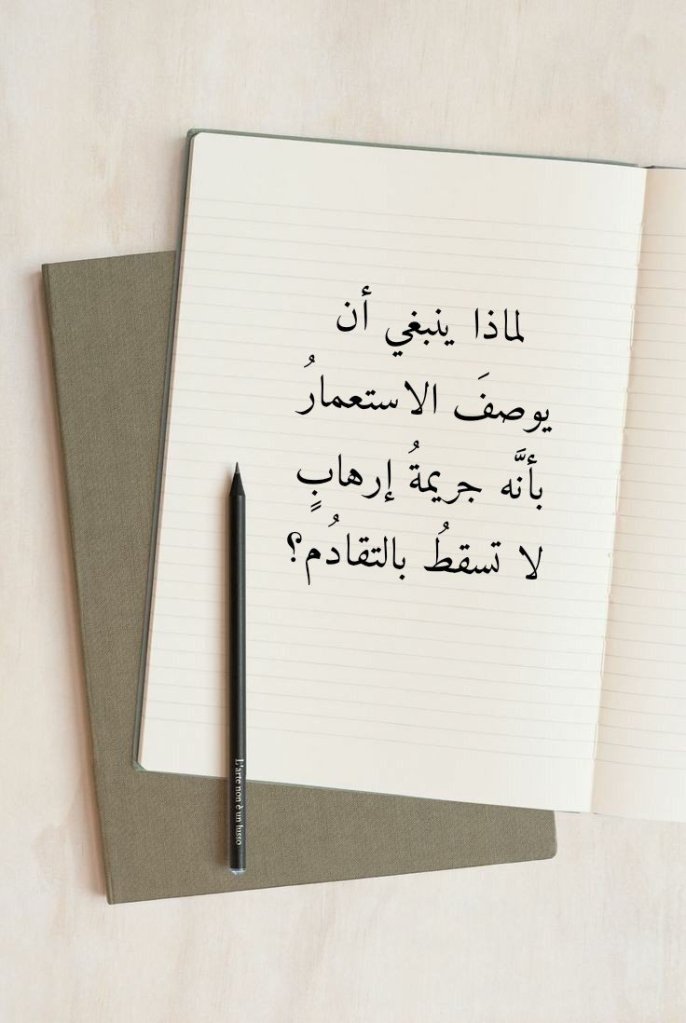 لماذا ينبغي أن
يوصفَ الاستعمارُ
بأنَّه جريمةُ إرهابٍ
لا تسقطُ بالتقادُم؟
L'arte non è un lusso